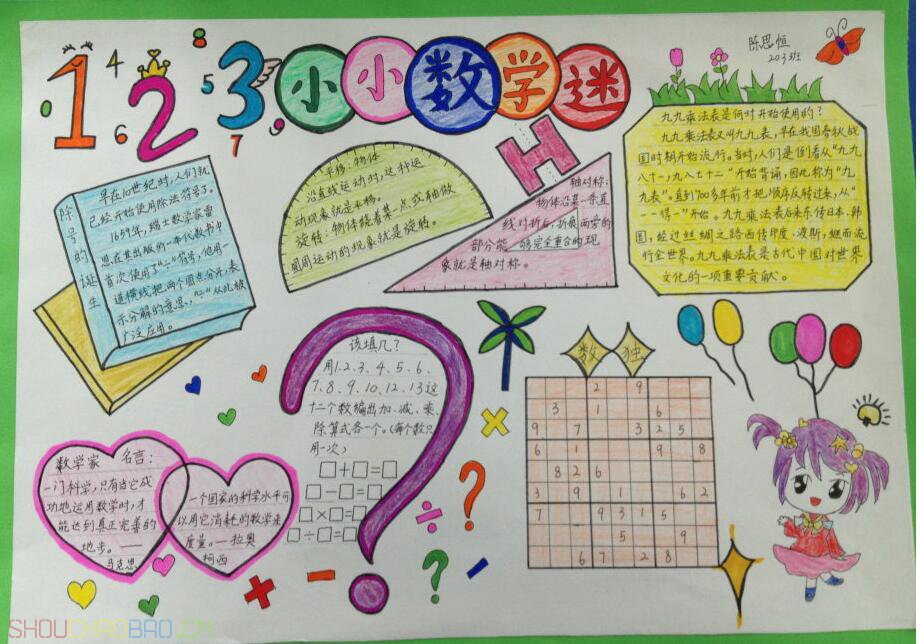 1 2 3
4
8
5
0
6
7
9
小小数学迷
陈思恒
203班
除号的诞生
早在10世纪时,人们就
已经开始使用除法符号了。
1659年,瑞士数学家雷
恩在其出版的一本代数书中
首次使用了“÷”符号,他用一
道横线把两个圆点分开,表
示分解的意思,“÷”从此被
广泛应用。
平移:物体
沿直线运动时,这种运
动现象就是平移。
旋转:物体绕着某一点或轴做
圆周运动的现象就是旋转。
轴对称:
物体沿某一条直
线对折后,折痕两旁的
部分能够完全重合的现
象就是轴对称。
九九乘法表是何时开始使用的?
九九乘法表又叫九九表,早在我国春秋战
国时期开始流行。当时,人们是倒着从“九九
八十一,九八七十二”开始背诵,因此称为“九
九表”。直到700多年前才把顺序反转过来,从“
一一得一”开始。九九乘法表后来东传日本、韩
国,经过丝绸之路西传印度、波斯,继而流
行全世界。九九乘法表是古代中国对世界
文化的一项重要贡献。
该填几?
用1、2、3、4、5、6、
7、8、9、10、12、13这
十二个数编出加、减、乘、
除算式各一个。(每个数只
用一次)
□+□=□
□-□=□
□×□=□
□÷□=□
数独
2 9
3 1 6
9 7 3 2 5
6 1 9 8
8 2 6
3 9 1 6 2
7 9 3 1 5
5 9
6 7 2 8
数学家 名言:
一门科学,只有当它成
功地运用数学时,才
能达到真正完善的
地步。——
马克思
一个国家的科学水平可
以用它消耗的数学来
度量。—拉奥
柯西
SHOUCHAOBAO.CN